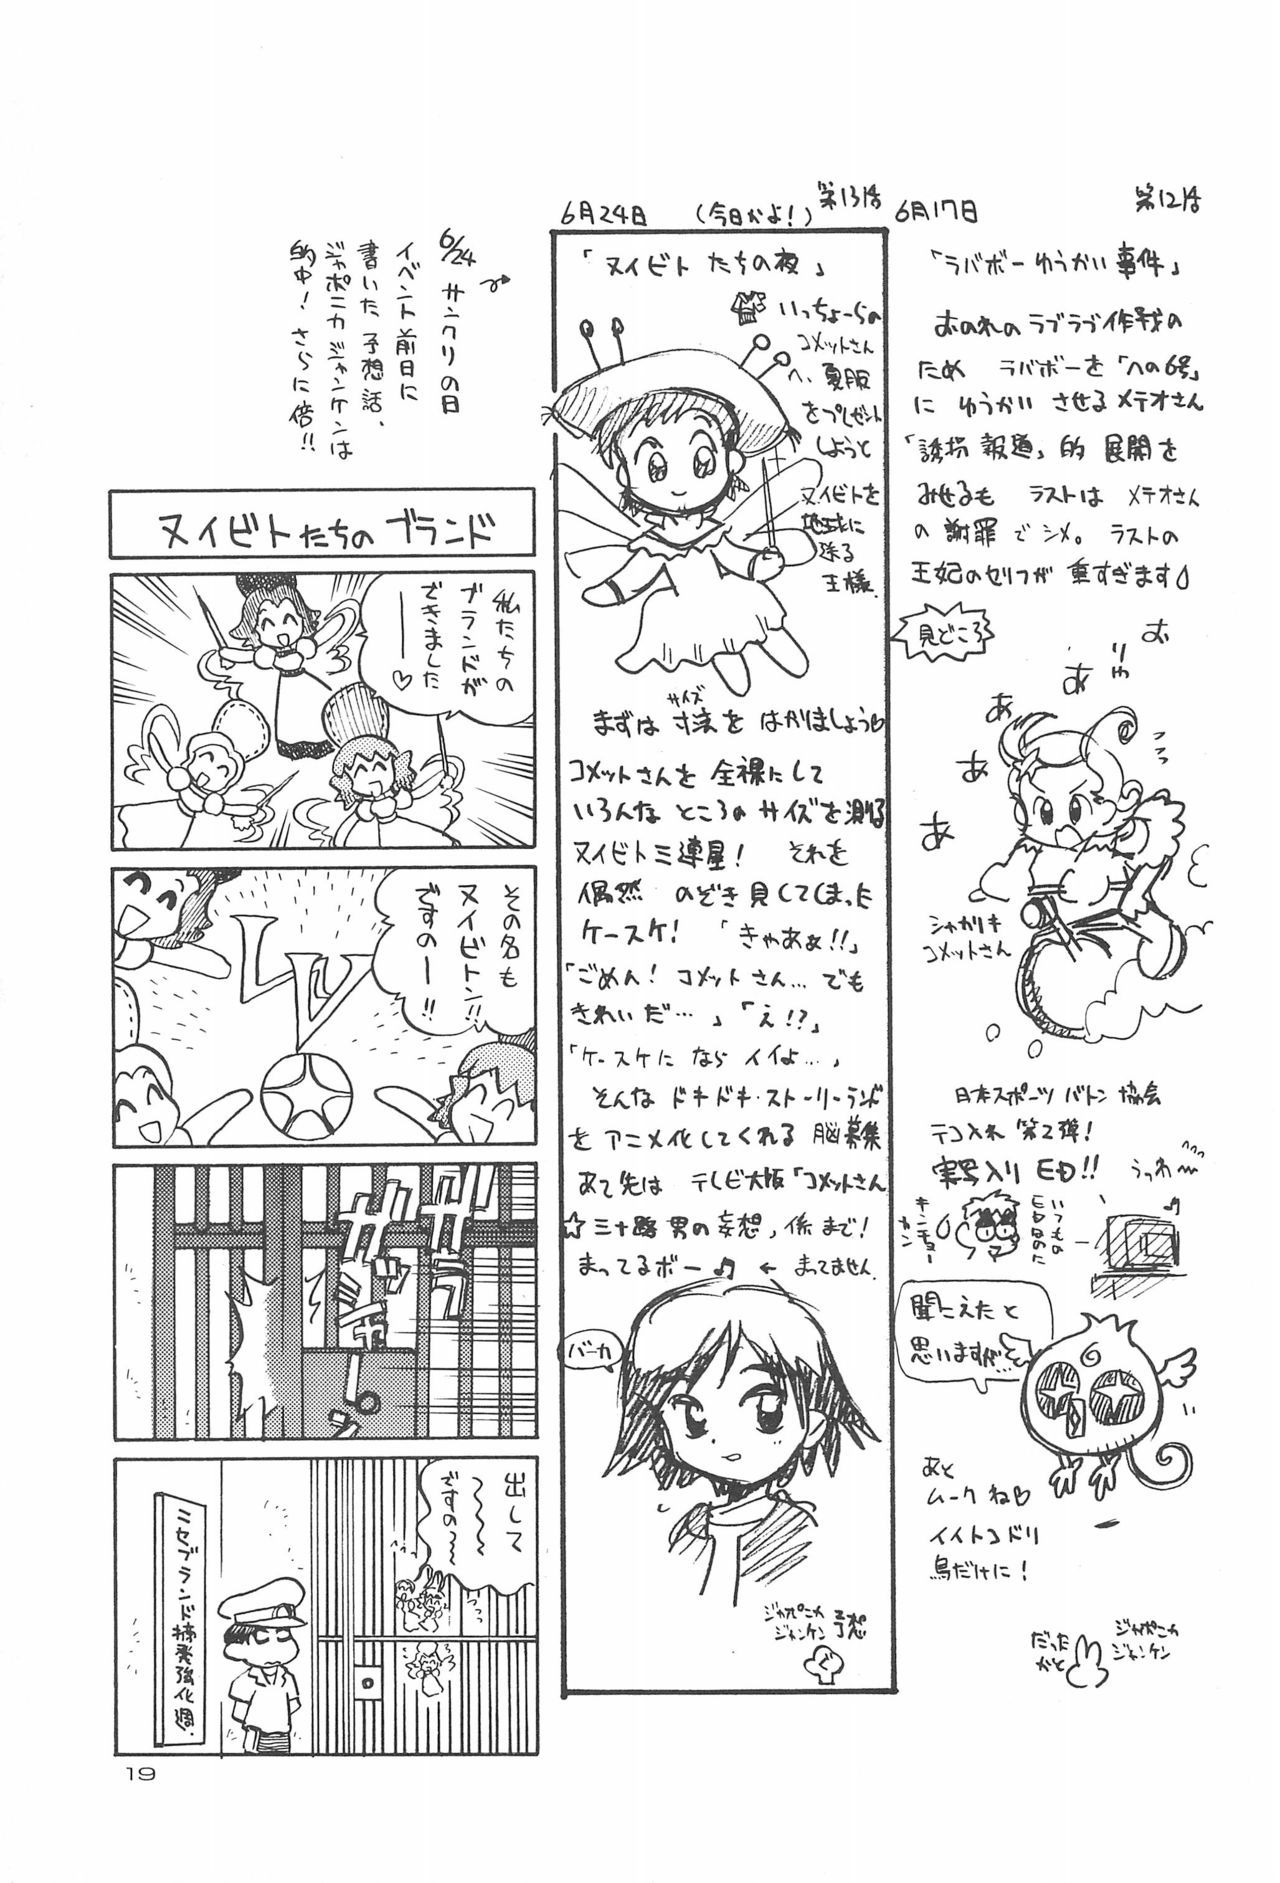 第12話
6月17日
「ラバボーゆうかい事件」
おのれのラブラブ作戦の
ため ラバボーを「ヘの6号」
に ゆうかい させるメテオさん
「誘拐報道」的 展開を
みせるも ラストは メテオさん
の 謝罪で シメ。 ラストの
王妃のセリフが 重すぎます
見どころ
おりゃあああああ
シャカリキ
コメットさん
日本スポーツ バトン 協会
テコ入れ 第2弾!
実写入り ED!!
うっわ〜
いつもの
EDなのに
キンチョー
カン
聞こえたと
思いますが…と
あと
ムーク ね♡
イイトコドリ
鳥だけに!
ジャポニカ
ジャンケン
だった
かと
第13話
6月24日 (今日かよ!)
「ヌイビト たちの夜」
いっちょーらの
コメットさん
へ、夏服
をプレゼント
しようと
ヌイビトを
地球に
送る
王様.
まずは 寸法を はかりましょう♡
サイズ
コメットさんを 全裸にして
いろんな ところの サイズを 測る
ヌイビト三連星! それを
偶然 のぞき見してしまった
ケースケ! 「きゃあぁ!!」
「ごめん! コメットさん… でも
きれいだ…」「え!?」
「ケースケに なら イイよ…」
そんな ドキドキ・ストーリーランド
を アニメ化してくれる 脳募集
あて先は テレビ大阪「コメットさん
☆三十路男の妄想」係まで!
まってるボー♪ ← まってません.
バーカ
ジャポニカ
ジャンケン
予想
ぐ
6/24 サンクリの日
イベント前日に
書いた予想話、
ジャポニカジャンケンは
的中! さらに倍!!
ヌイビトたちのブランド
私たちの
ブランドが
できました
――♡
その名も
ヌイビトン!!
ですのー!!
LV
ガラ
ガッシャン
出して
〜〜〜
ですの〜
ニセブランド摘発強化週.
19